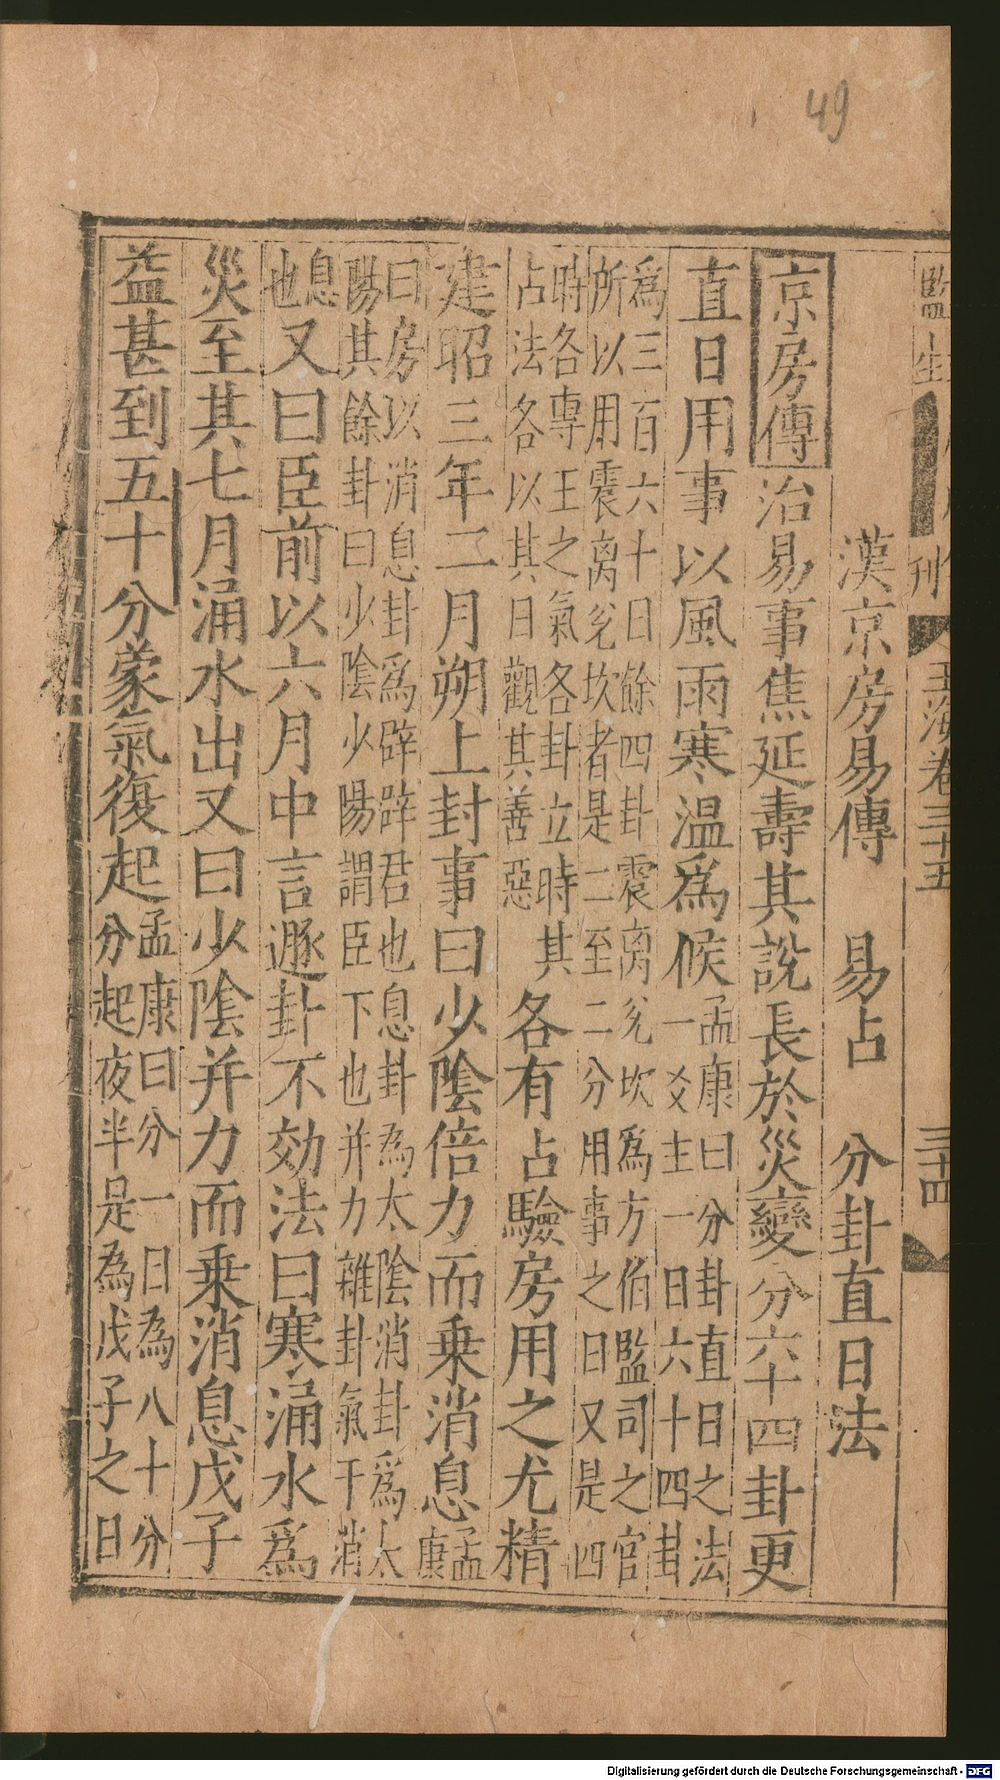 49
監生
刊
玉海卷三十五
三十四
漢京房易傳 易占 分卦直日法
京房傳治易事焦延壽其說長於災變分六十四卦更
直日用事以風雨寒温爲候孟康曰分卦直日之法
一爻主一日六十四卦
爲三百六十日餘四卦震离兊坎爲方伯監司之官
所以用震离兊坎者是二至二分用事之日又是四
時各專王之氣各卦立時其
占法各以其日觀其善惡
各有占驗房用之尤精
建昭三年二月朔上封事曰少陰倍力而乗消息孟
康
曰房以消息卦爲辟辟君也息卦為太陰消卦爲太
陽其餘卦曰少陰少陽謂臣下也并力雜卦氣干消
息
也
又曰臣前以六月中言遯卦不効法曰寒涌水爲
災至其七月涌水出又曰少陰并力而乗消息戊子
益甚到五十分蒙氣復起孟康曰分一日為八十分
分起夜半是為戊子之日
Digitalisierung gefördert durch die Deutsche Forschungsgemeinschaft - DFG